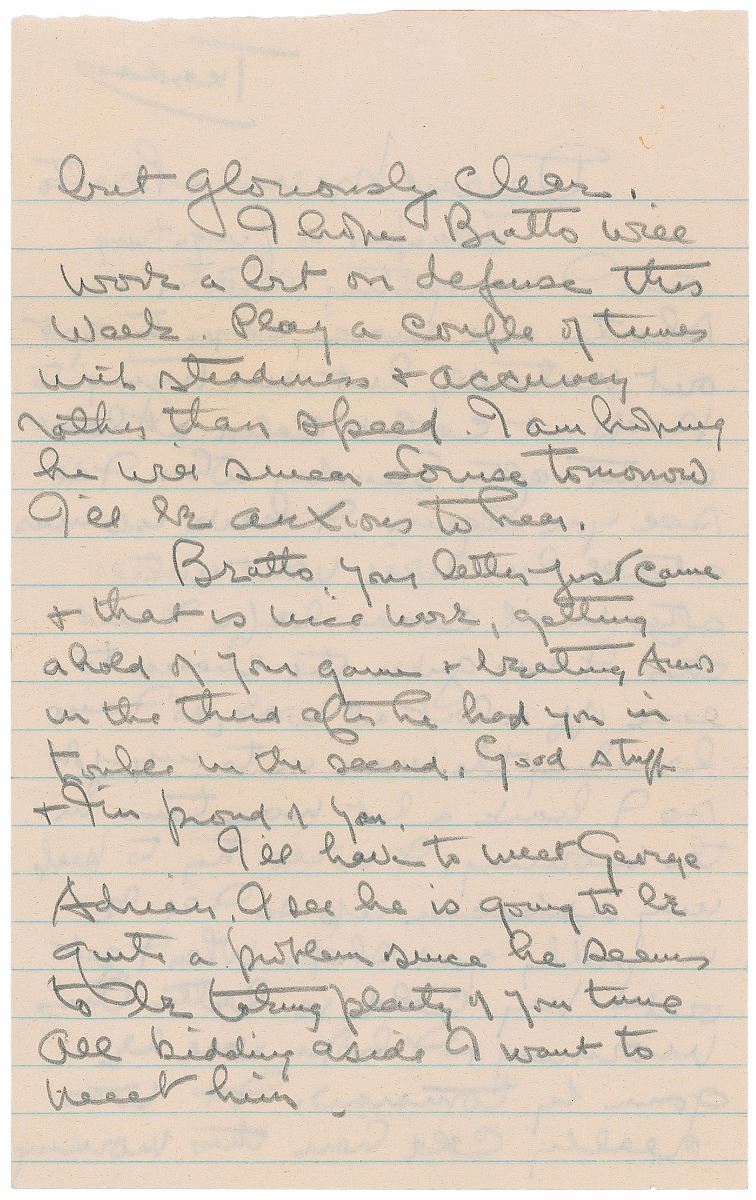 but gloriously clear.
I hope Bratto will
work a lot on defense this
week. Play a couple of times
with steadiness & accuracy
rather than speed. I am hoping
he will smear Louise tomorrow
I'll be anxious to hear.
Bratto, your letter just came
& that is nice work, getting
ahold of your game & beating Amos
in the third after he had you in
trouble in the second. Good stuff
& I'm proud of you.
I'll have to meet George
Adrian. I see he is going to be
quite a problem since he seems
to be taking plenty of your time
All kidding aside I want to
meet him.